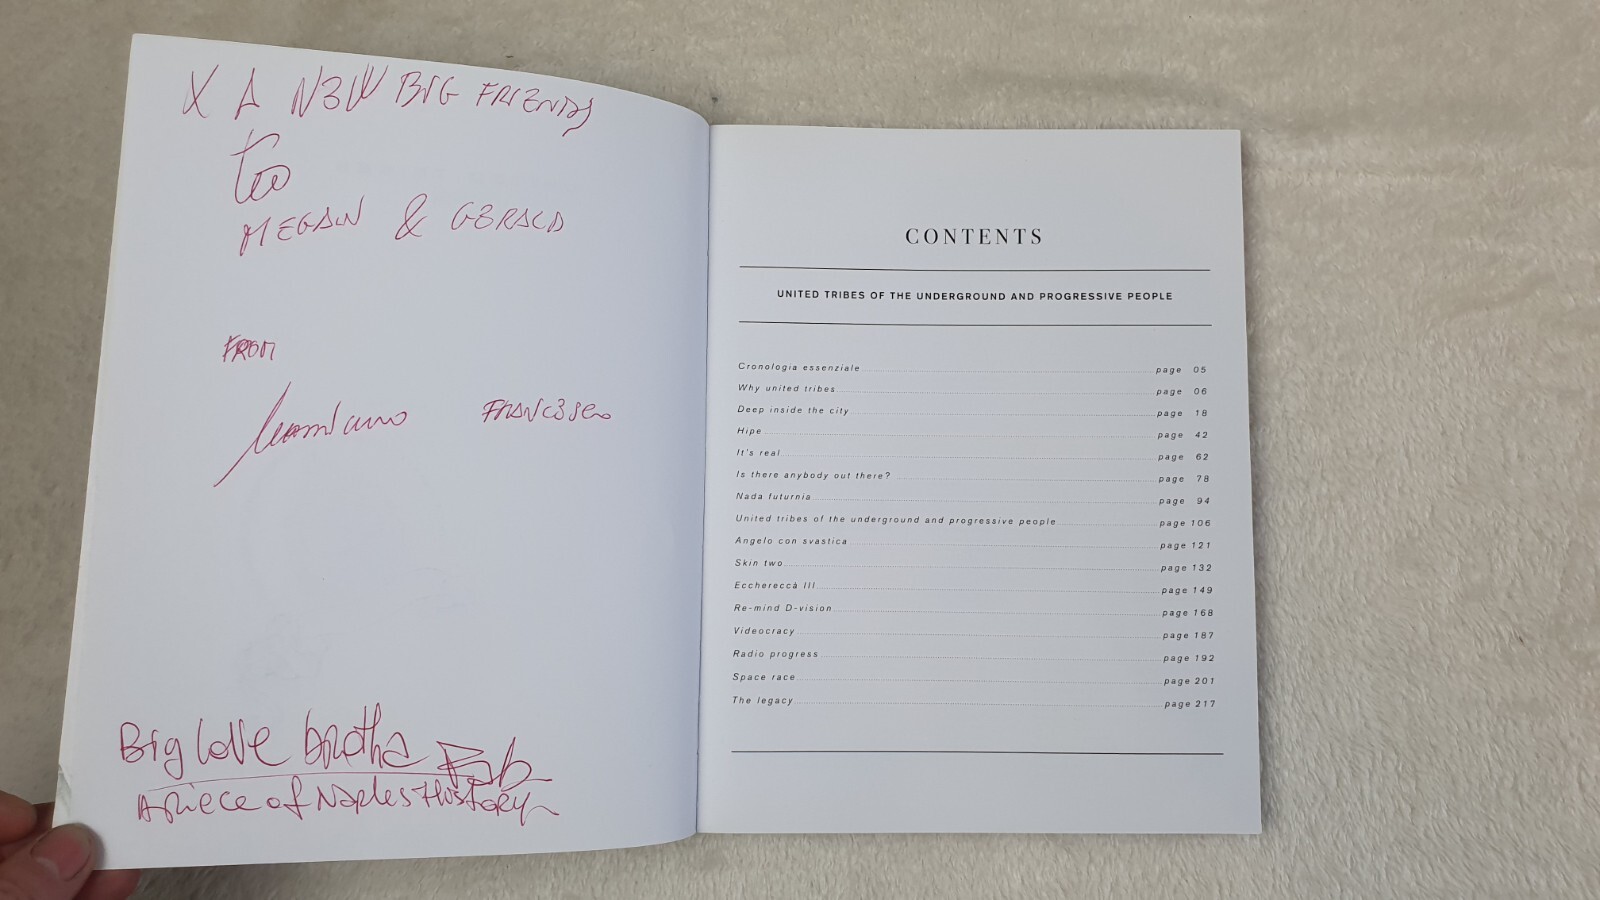 X A NEW BIG FRIENDS
to
MEGAN & GERALD
FROM
FRANCESCO
Big love brotha
A piece of Naples History
CONTENTS
UNITED TRIBES OF THE UNDERGROUND AND PROGRESSIVE PEOPLE
Cronologia essenziale page 05
Why united tribes page 06
Deep inside the city page 18
Hipe page 42
It's real page 62
Is there anybody out there? page 78
Nada futurnia page 94
United tribes of the underground and progressive people page 106
Angelo con svastica page 121
Skin two page 132
Ecchereccà III page 149
Re-mind D-vision page 168
Videocracy page 187
Radio progress page 192
Space race page 201
The legacy page 217